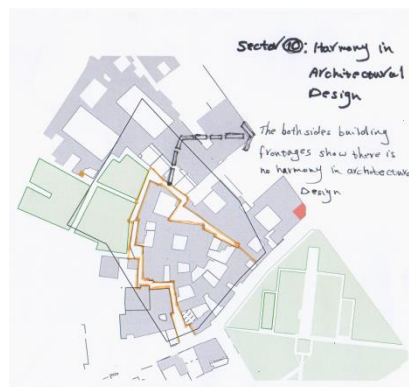 Sector 10: Harmony in
Architectural
Design
The both sides building
frontages show there is
no harmony in architecture
Design